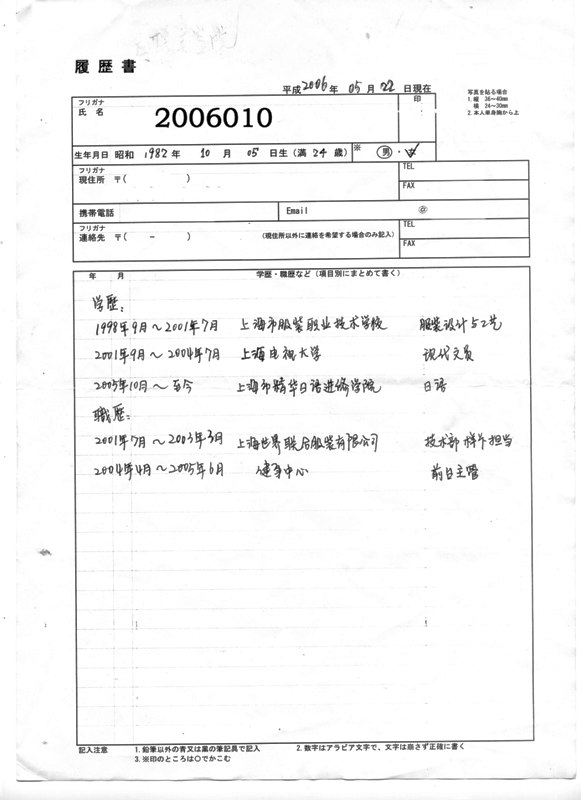 履歴書
平成2006年 05月 22日現在
写真を貼る場合
1. 縦 36~40mm
横 24~30mm
2. 本人単身胸から上
フリガナ
氏 名
2006010
印
生年月日 昭和 1982年 10月 05日生(満 24歳)
※ 男・女
フリガナ
現住所 〒( )
TEL
FAX
携帯電話
Email @
フリガナ
連絡先 〒( - )
(現住所以外に連絡を希望する場合のみ記入)
TEL
FAX
年 月 学歴・職歴など(項目別にまとめて書く)
学歴:
1998年9月~2001年7月 上海市服装职业技术学校 服装设计与工艺
2001年9月~2004年7月 上海电视大学 现代文员
2005年10月~至今 上海市精华日语进修学院 日语
職歴:
2001年7月~2003年3月 上海世界联合服装有限公司 技术部 样午担当
2004年4月~2005年6月 健身中心 前台主管
記入注意 1. 鉛筆以外の青又は黒の筆記具で記入 2. 数字はアラビア文字で、文字は崩さず正確に書く
3. ※印のところは〇でかこむ